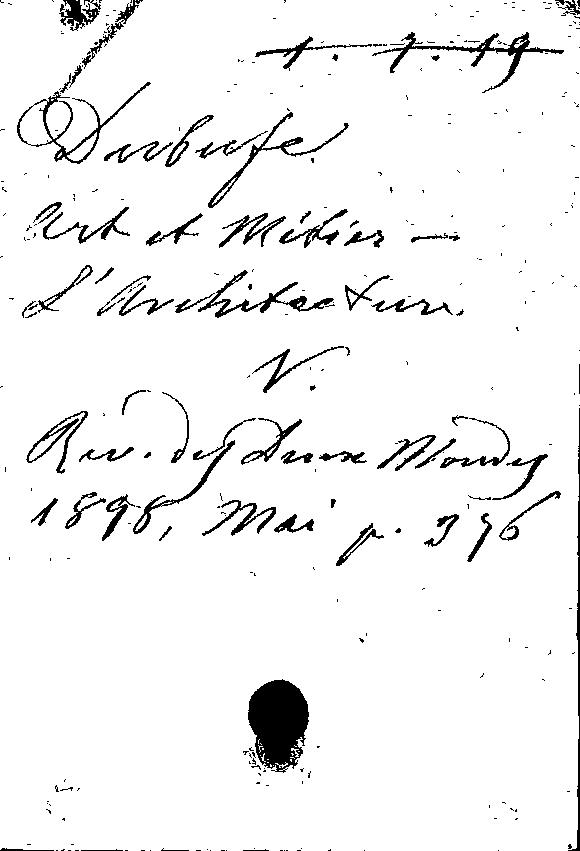 1. 7. 19
Dubufe.
Art et Métier —
L'Architecture.
V.
Rev. des Deux Mondes
1898, Mai p. 376